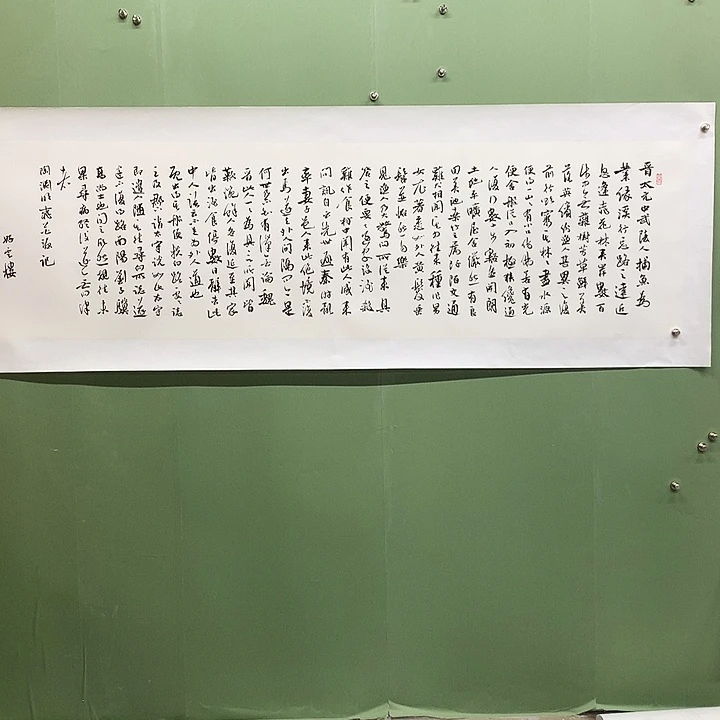 晋太元中武陵人捕魚為
業緣溪行忘路之遠近
忽逢桃花林夾岸數百
步中無雜樹芳草鮮美
落英繽紛漁人甚異之復
前行欲窮其林林盡水源
便得一山山有小口彷彿若有光
便舍船從口入初極狹纔通
人復行數十步豁然開朗
土地平曠屋舍儼然有良
田美池桑竹之屬阡陌交通
雞犬相聞其中往來種作男
女衣著悉如外人黃髮垂
髫並怡然自樂
見漁人乃大驚問所從來具
答之便要還家設酒殺
雞作食村中聞有此人咸來
問訊自云先世避秦時亂
率妻子邑人來此絕境不復
出焉遂與外人間隔問今是
何世乃不知有漢無論魏
晉此人一一為具言所聞皆
歎惋餘人各復延至其家
皆出酒食停數日辭去此
中人語云不足為外人道也
既出得其船便扶向路處處誌
之及郡下詣太守說如此太守
即遣人隨其往尋向所誌遂
迷不復得路南陽劉子驥
高尚士也聞之欣然規往未
果尋病終後遂無問津
者
陶淵明桃花源記